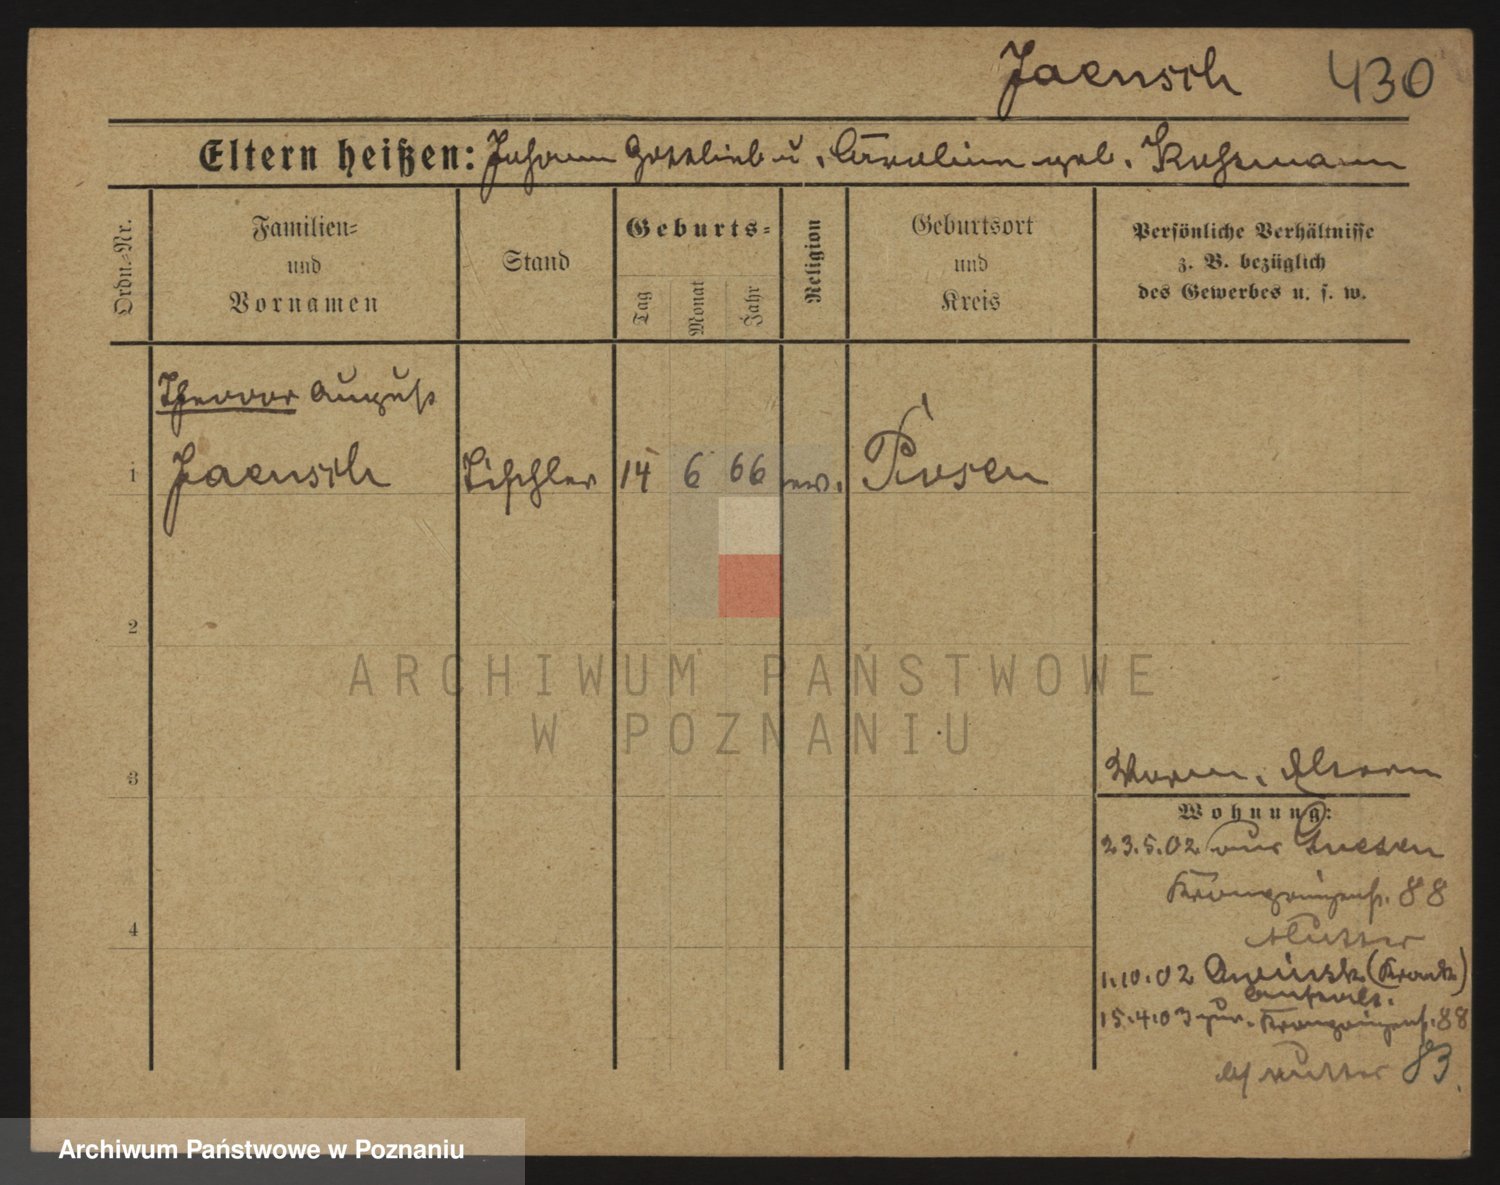 Jaensch 430
Eltern heißen: Johann Gottlieb u. Carolina geb. Kussmann
Ordn.-Nr.
Familien-
und
Vornamen
Stand
Geburts-
Tag
Monat
Jahr
Religion
Geburtsort
und
Kreis
Persönliche Verhältnisse
z. B. bezüglich
des Gewerbes u. s. w.
Theodor August
1 Jaensch Tischler 14 6 66 ev. Posen
2
ARCHIWUM PAŃSTWOWE
W POZNANIU
3
Eltern
Wohnung:
23.5.02 aus Gnesen
Kronprinzenst. 88
Mutter
4
1.10.02 (Krank.)
15.4.03 zur. Kronprinzenst. 88
b/ Mutter 83
Archiwum Państwowe w Poznaniu